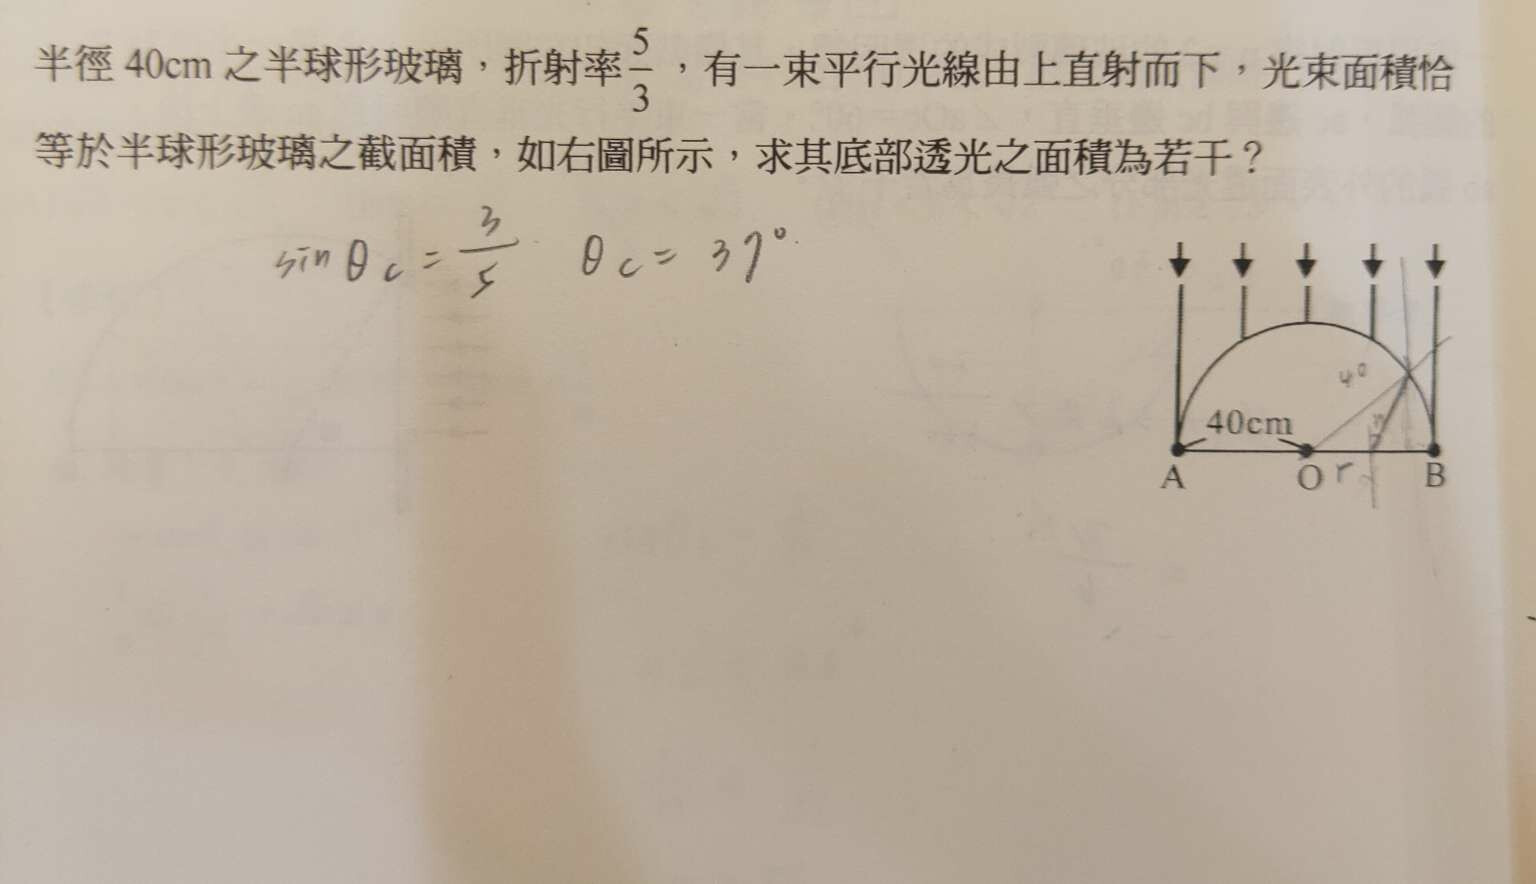 半徑 40cm 之半球形玻璃，折射率 5/3 ，有一束平行光線由上直射而下，光束面積恰
等於半球形玻璃之截面積，如右圖所示，求其底部透光之面積為若干？
sin θc = 3/5  θc = 37°
40
40cm
A O r B